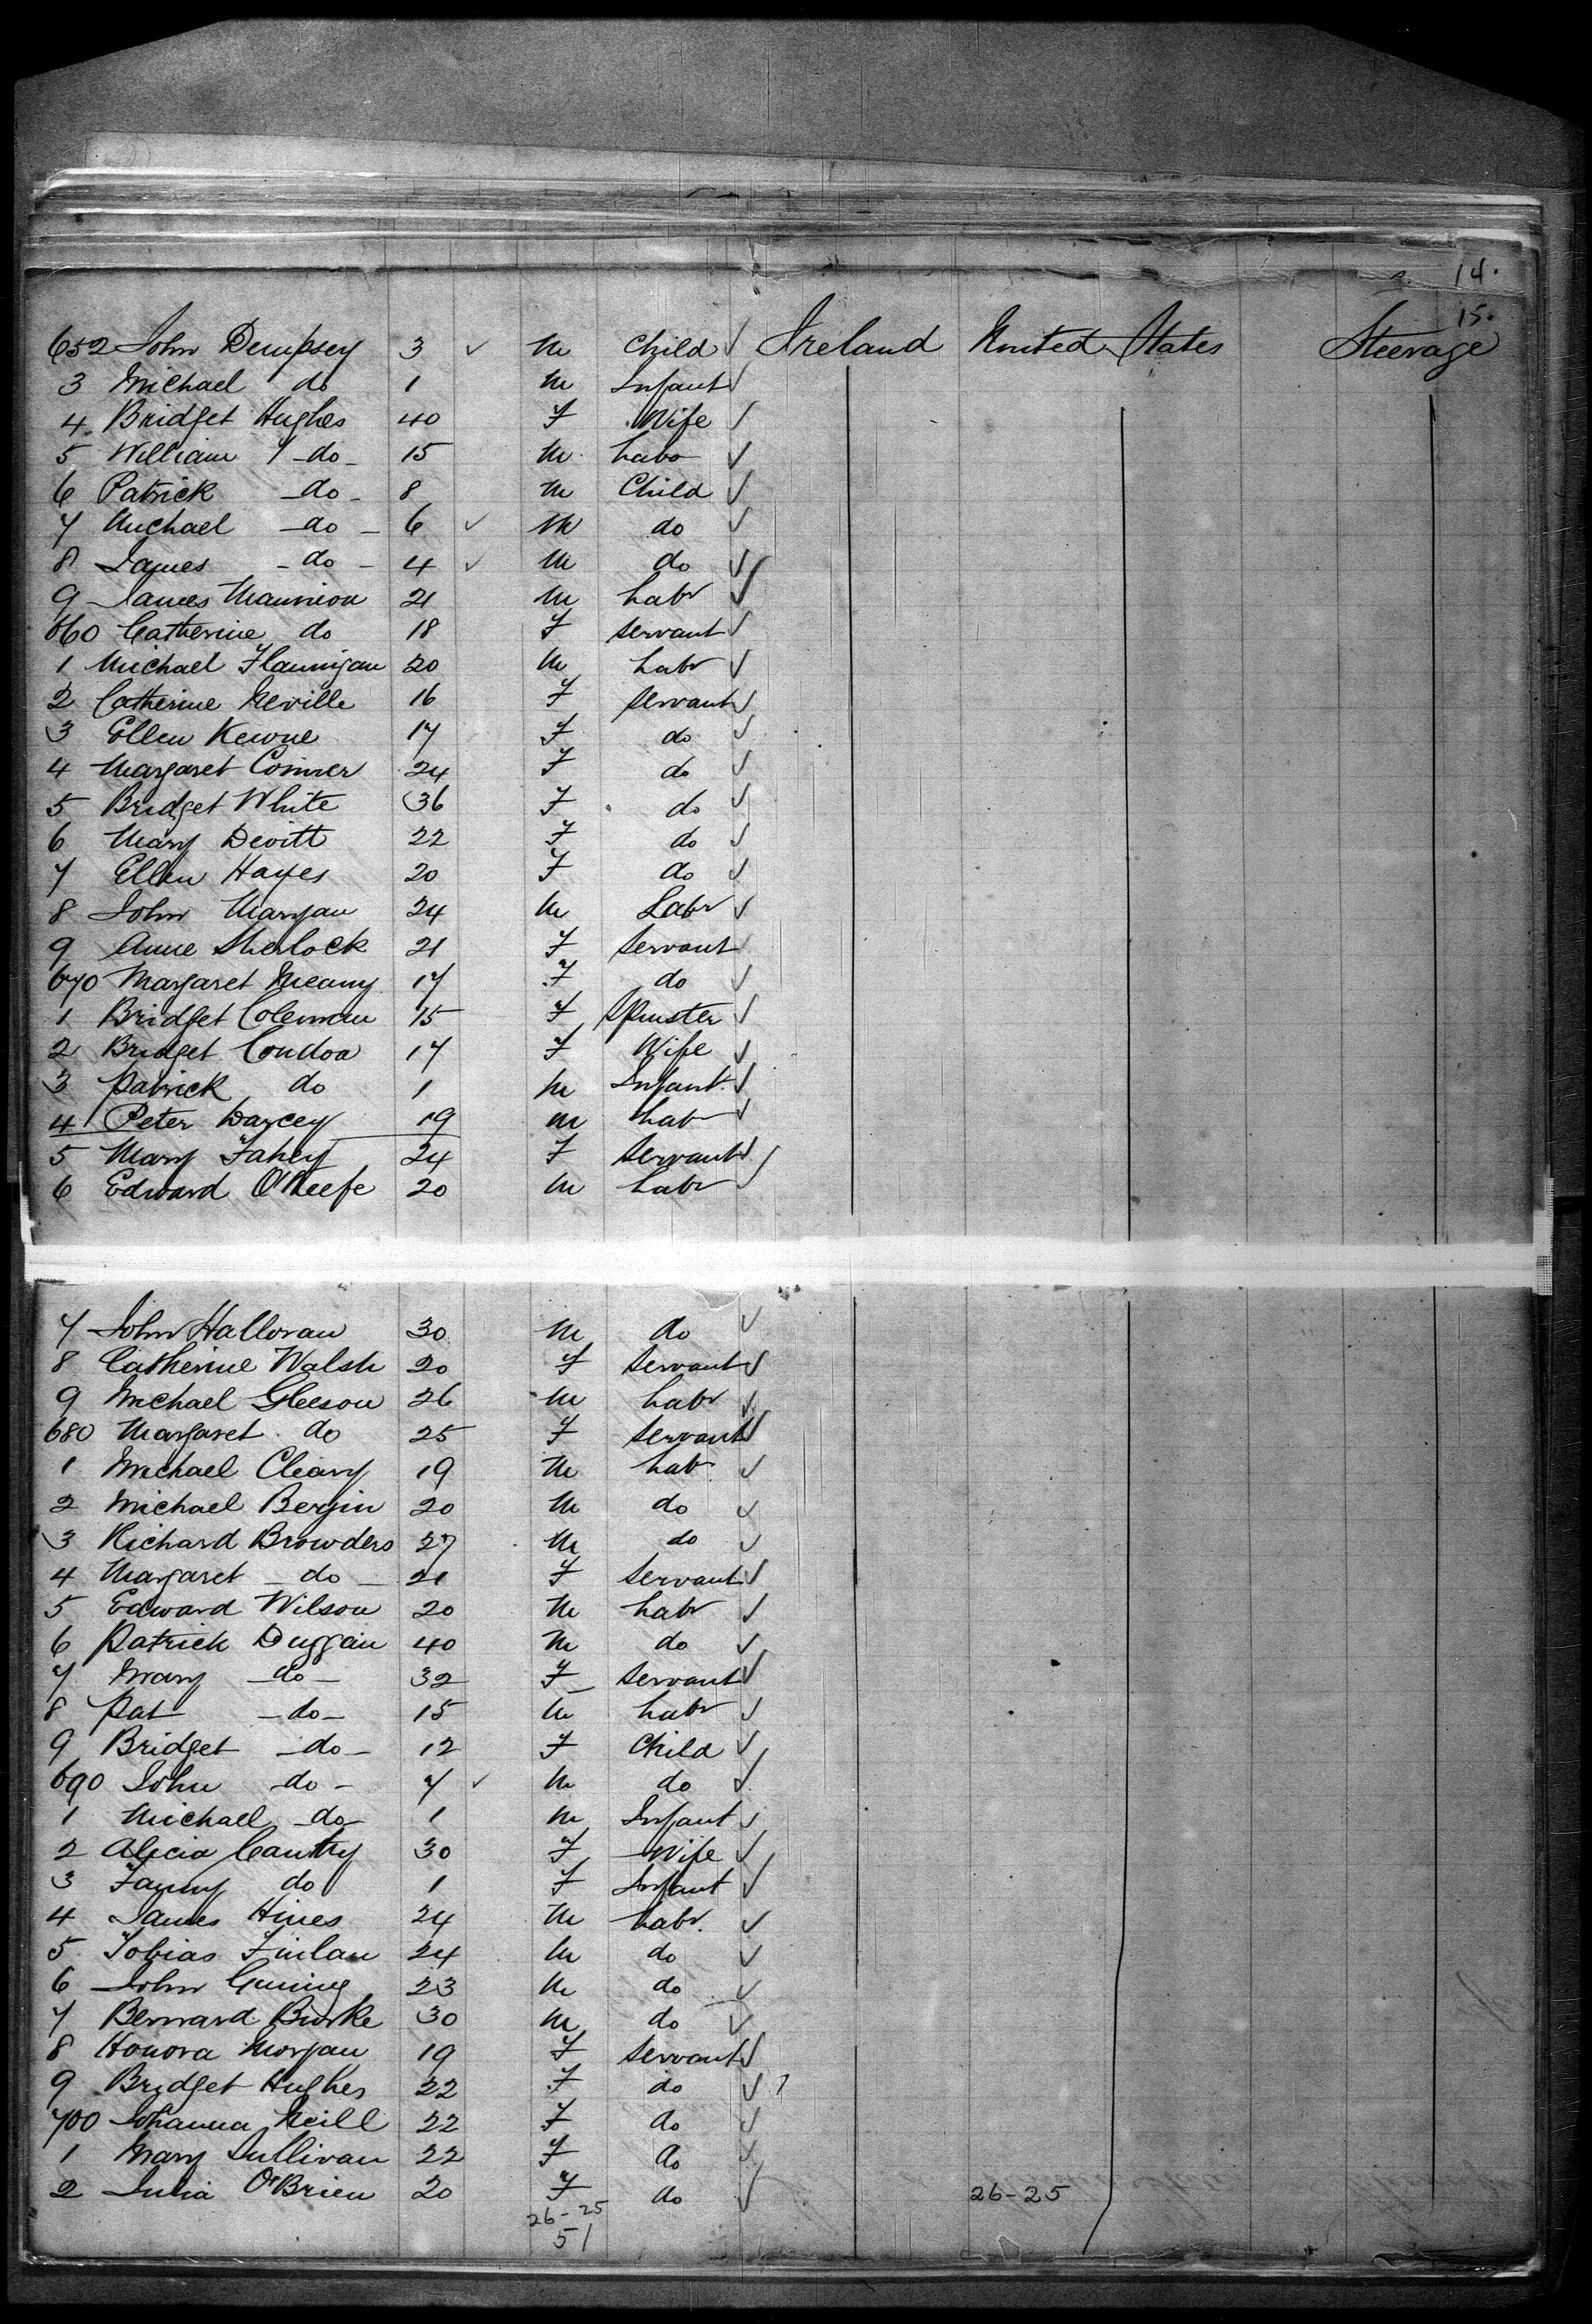 14.
15.
652 John Dempsey 3 ✓ M Child ✓ Ireland United States Steerage
3 Michael do 1 M Infant ✓
4 Bridget Hughes 40 F Wife ✓
5 William do 15 M Labr ✓
6 Patrick do 8 M Child ✓
7 Michael do 6 ✓ M do ✓
8 James do 4 ✓ M do ✓
9 James Mannion 21 M Labr ✓
660 Catherine do 18 F Servant ✓
1 Michael Flannigan 20 M Labr ✓
2 Catherine Neville 16 F Servant ✓
3 Ellen 17 F do ✓
4 Margaret Conner 24 F do ✓
5 Bridget White 36 F do ✓
6 Mary Devitt 22 F do ✓
7 Ellen Hayes 20 F do ✓
8 John 24 M Labr ✓
9 Anne Sherlock 21 F Servant ✓
670 Margaret Meany 17 F do ✓
1 Bridget Coleman 15 F Spinster ✓
2 Bridget 17 F Wife ✓
3 Patrick do 1 M Infant ✓
4 Peter Darcey 19 M Lab ✓
5 Mary Fahey 24 F Servant ✓
6 Edward O'Keefe 20 M Labr ✓
7 John Halloran 30 M do ✓
8 Catherine Walsh 20 F Servant ✓
9 Michael Gleeson 26 M Labr ✓
680 Margaret do 25 F Servant ✓
1 Michael Cleary 19 M Lab ✓
2 Michael Bergin 20 M do ✓
3 Richard Browders 27 M do ✓
4 Margaret do 21 F Servant ✓
5 Edward Wilson 20 M Labr ✓
6 Patrick Duggan 40 M do ✓
7 Mary do 32 F Servant ✓
8 Pat do 15 M Labr ✓
9 Bridget do 12 F Child ✓
690 John do 7 ✓ M do ✓
1 Michael do 1 M Infant ✓
2 Alicia 30 F Wife ✓
3 Fanny do 1 F Infant ✓
4 James Hines 24 M Labr. ✓
5 Tobias Finlan 24 M do ✓
6 John 23 M do ✓
7 Bernard Burke 30 M do ✓
8 Honora Morgan 19 F Servant ✓
9 Bridget Hughes 22 F do ✓
700 Johanna Neill 22 F do ✓
1 Mary Sullivan 22 F do ✓
2 Julia O'Brien 20 F do ✓ 26-25
26-25
51